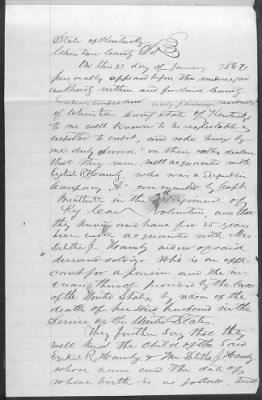 State of Kentucky
Clinton County SS
On this 23 day of January 1864
personally appeared before the undersigned
authority within and for said county
residents
of Clinton County State of Kentucky
to me well known to be respectable &
entitled to credit, and who being by
me duly sworn, on their oaths declare
that they were well acquainted with
Ezekiel P. Hamly who was a
Company A commanded by Capt
in the Regiment of
Ky Volunteers, and that
they know and have for 20 years
been well acquainted with Mrs
J. Hamly widow of said
deceased soldier who is an appli
cant for a pension and the in
crease thereof provided by the laws
of the United States, by reason of the
death of her said husband in the
service of the United States
They further say that they
well know the child of the said
Ezekiel P. Hamly & J. Hamly
whose name and the date of
whose birth is as follows